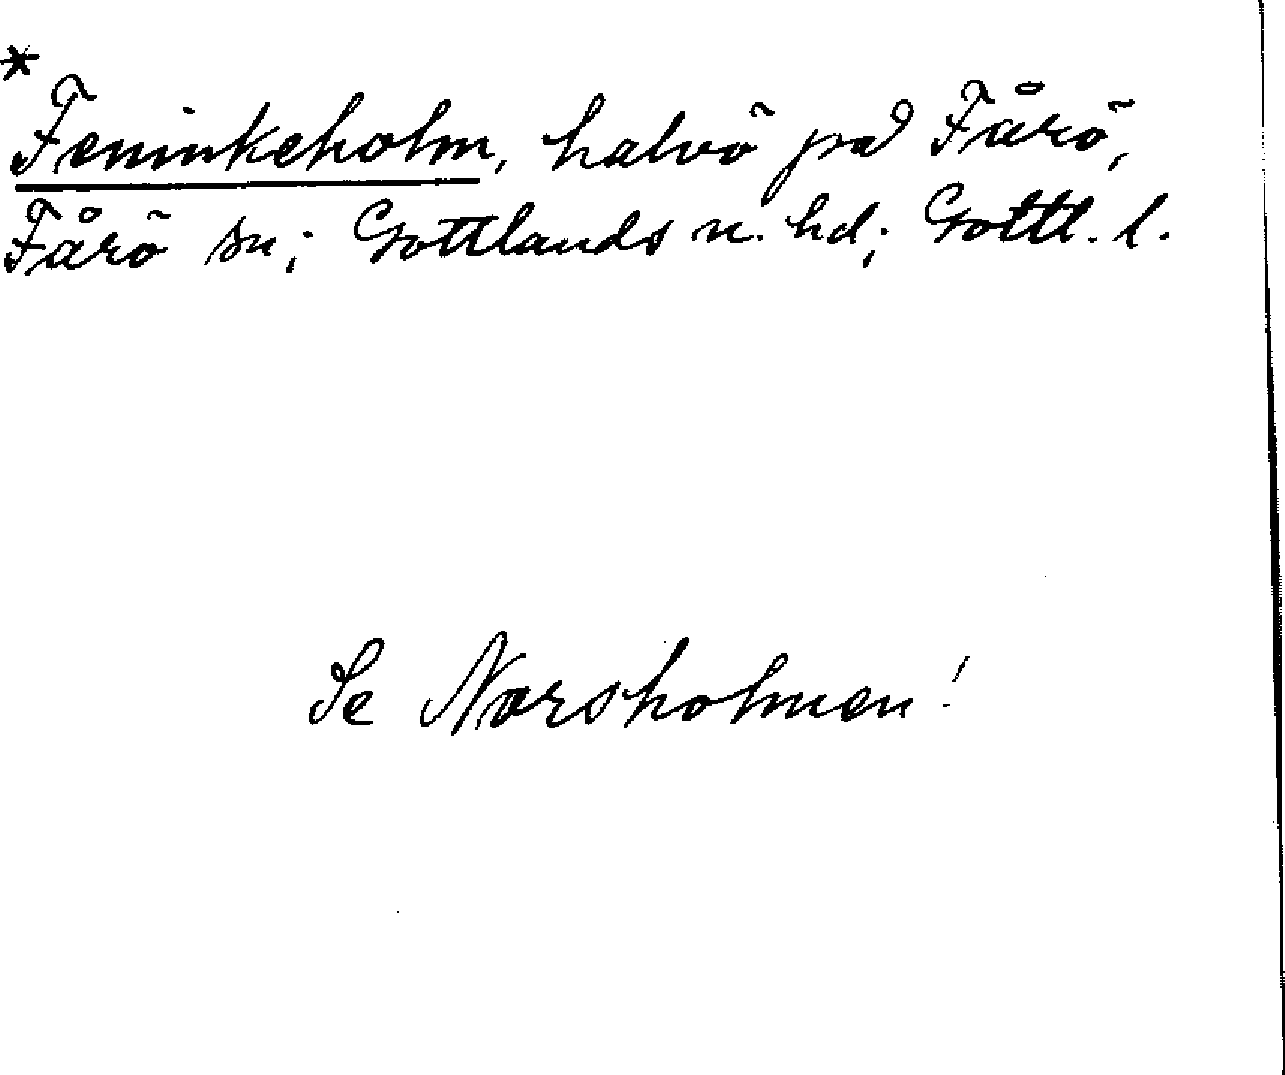 *
Feninkeholm, halvö på Fårö,
Fårö sn; Gottlands n. hd; Gottl. l.
Se Norsholmen!